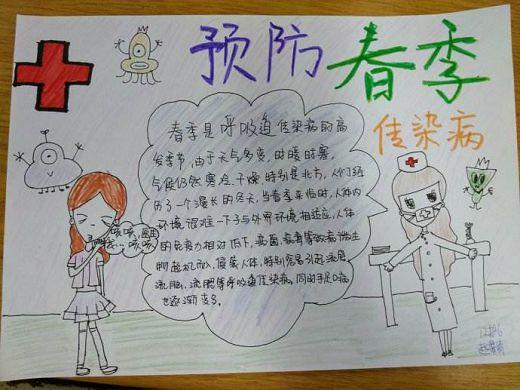 预防春季
传染病
春季是呼吸道传染病的高
发季节,由于天气多变,时暖时寒,
气候仍然寒冷、干燥,特别是北方,人们经
历了一个漫长的冬天,当春季来临时,人体内
环境很难一下子与外界环境相适应,人体
的免疫力相对低下,细菌、病毒等致病微生
物趁机而入,侵袭人体,特别容易引起流感、
流脑、流腮等呼吸道传染病,同时手足口病
也逐渐变多。
咳咳
咳咳
12护6